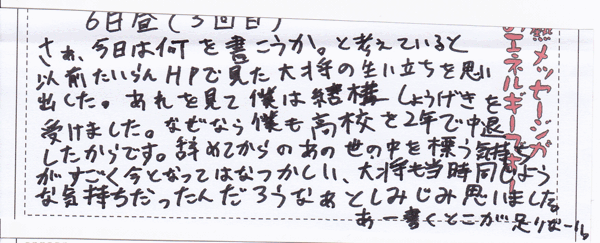 6日昼(3回目)
さぁ、今日は何を書こうか。と考えていると
以前たいらんHPで見た大将の生い立ちを思い
出した。あれを見て僕は結構しょうげきを
受けました。なぜなら僕も高校を2年で中退
したからです。辞めてからのあの世の中を標う気持ち
がすごく今となってはなつかしい、大将も当時同じよう
な気持ちだったんだろうなぁとしみじみ思いました。
あー書くとこが足りなーい。
メッセージが
エネルギー